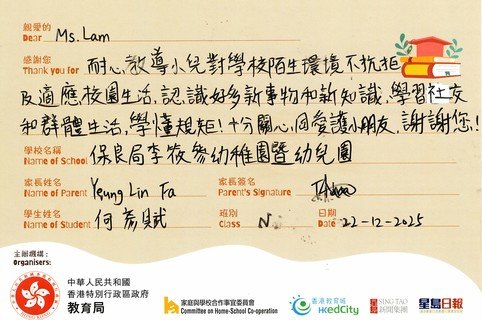 親愛的
Dear Ms. Lam
感謝您
Thank you for 耐心教導小兒對學校陌生環境不抗拒
及適應校園生活,認識好多新事物和新知識,學習社交
和群體生活,學懂規矩!十分關心同愛護小朋友,謝謝您!
學校名稱
Name of School 保良局李筱參幼稚園暨幼兒園
家長姓名 家長簽名
Name of Parent Yeung Lin Fa Parent's Signature
學生姓名 班別 日期
Name of Student 何 賦 Class N Date 22-12-2025
主辦機構:
Organisers:
中華人民共和國
香港特別行政區政府
教育局
家庭與學校合作事宜委員會
Committee on Home-School Co-operation
香港教育城
HKedCity
星島 SING TAO
新聞集團
星島日報